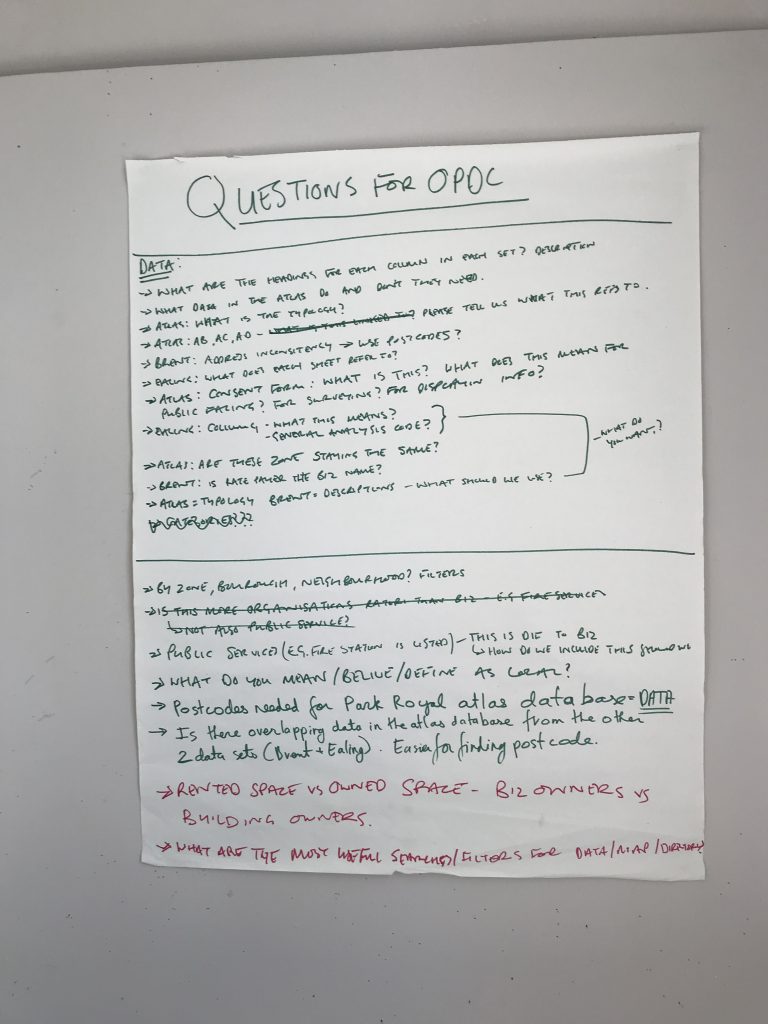 QUESTIONS FOR OPDC
DATA:
→ WHAT ARE THE HEADINGS FOR EACH COLUMN IN EACH SET? DESCRIPTION
→ WHAT DATA IN THE ATLAS DO AND DON'T THEY NEED.
→ ATLAS: WHAT IS THE TYPOLOGY?
→ ATLAS: AB, AC, AD - WHAT IS THIS LINKED TO? PLEASE TELL US WHAT THIS REFS TO.
→ BRENT: ADDRESS INCONSITENCY → USE POSTCODES?
→ EALING: WHAT DOES EACH SHEET REFER TO?
→ ATLAS: CONSENT FORM: WHAT IS THIS? WHAT DOES THIS MEAN FOR
PUBLIC FACING? FOR SURVEYING? FOR DISPLAYIN INFO?
→ EALING: COLUMNS - WHAT THIS MEANS?
- GENERAL ANALYSIS CODE?
- WHAT DO
YOU WANT?
→ ATLAS: ARE THESE ZONE STAYING THE SAME?
→ BRENT: IS RATE PAYER THE BIZ NAME?
→ ATLAS = TYPOLOGY BRENT = DESCRIPTIONS - WHAT SHOULD WE USE?
→ BY ZONE, BOUROUGH, NEIGHBOURHOOD? FILTERS
→ IS THIS MORE ORGANISATIONS RATHER THAN BIZ - E.G FIRE SERVICE
↳ NOT ALSO PUBLIC SERVICE?
→ PUBLIC SERVICES (E.G. FIRE STATION IS LISTED) - THIS IS DIF TO BIZ
↳ HOW DO WE INCLUDE THIS SHOULD WE
→ WHAT DO YOU MEAN/BELIVE/DEFINE AS LOCAL?
→ Postcodes needed for Park Royal atlas database = DATA
→ Is there overlapping data in the atlas database from the other
2 data sets (Brent + Ealing). Easier for finding post code.
→ RENTED SPACE VS OWNED SPACE - BIZ OWNERS VS
BUILDING OWNERS.
→ WHAT ARE THE MOST USEFUL SEARCHES/FILTERS FOR DATA/MAP/DIRECTORY?